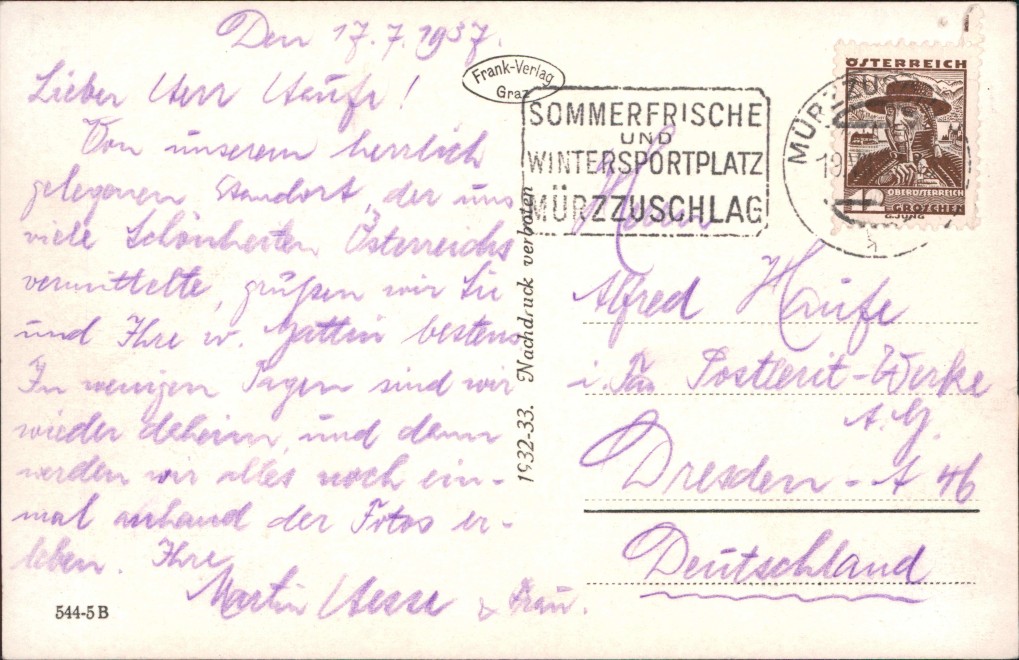 Den 17.7.1937.
Lieber Herr Haufe!
Von unserem herrlich
gelegenen Standort, der uns
viele Schönheiten Österreichs
vermittelte, grüßen wir Sie
und Ihre w. Gattin bestens
In wenigen Tagen sind wir
wieder daheim und dann
werden wir alles noch ein-
mal anhand der Fotos er-
leben. Ihre
Martin Hesse & Frau.
544-5 B
Frank-Verlag
Graz
1932-33. Nachdruck verboten
SOMMERFRISCHE
UND
WINTERSPORTPLATZ
MÜRZZUSCHLAG
MÜRZZUS
ÖSTERREICH
OBERÖSTERREICH
12 GROSCHEN
G.JUNG
Herrn
Alfred Haufe
i. Fa. Postlerit-Werke
A.G.
Dresden-A 46
Deutschland